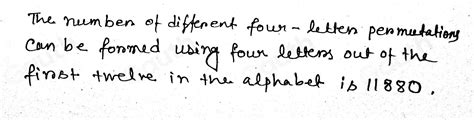 The number of different four-letter permutations
can be formed using four letters out of the
first twelve in the alphabet is 11880.